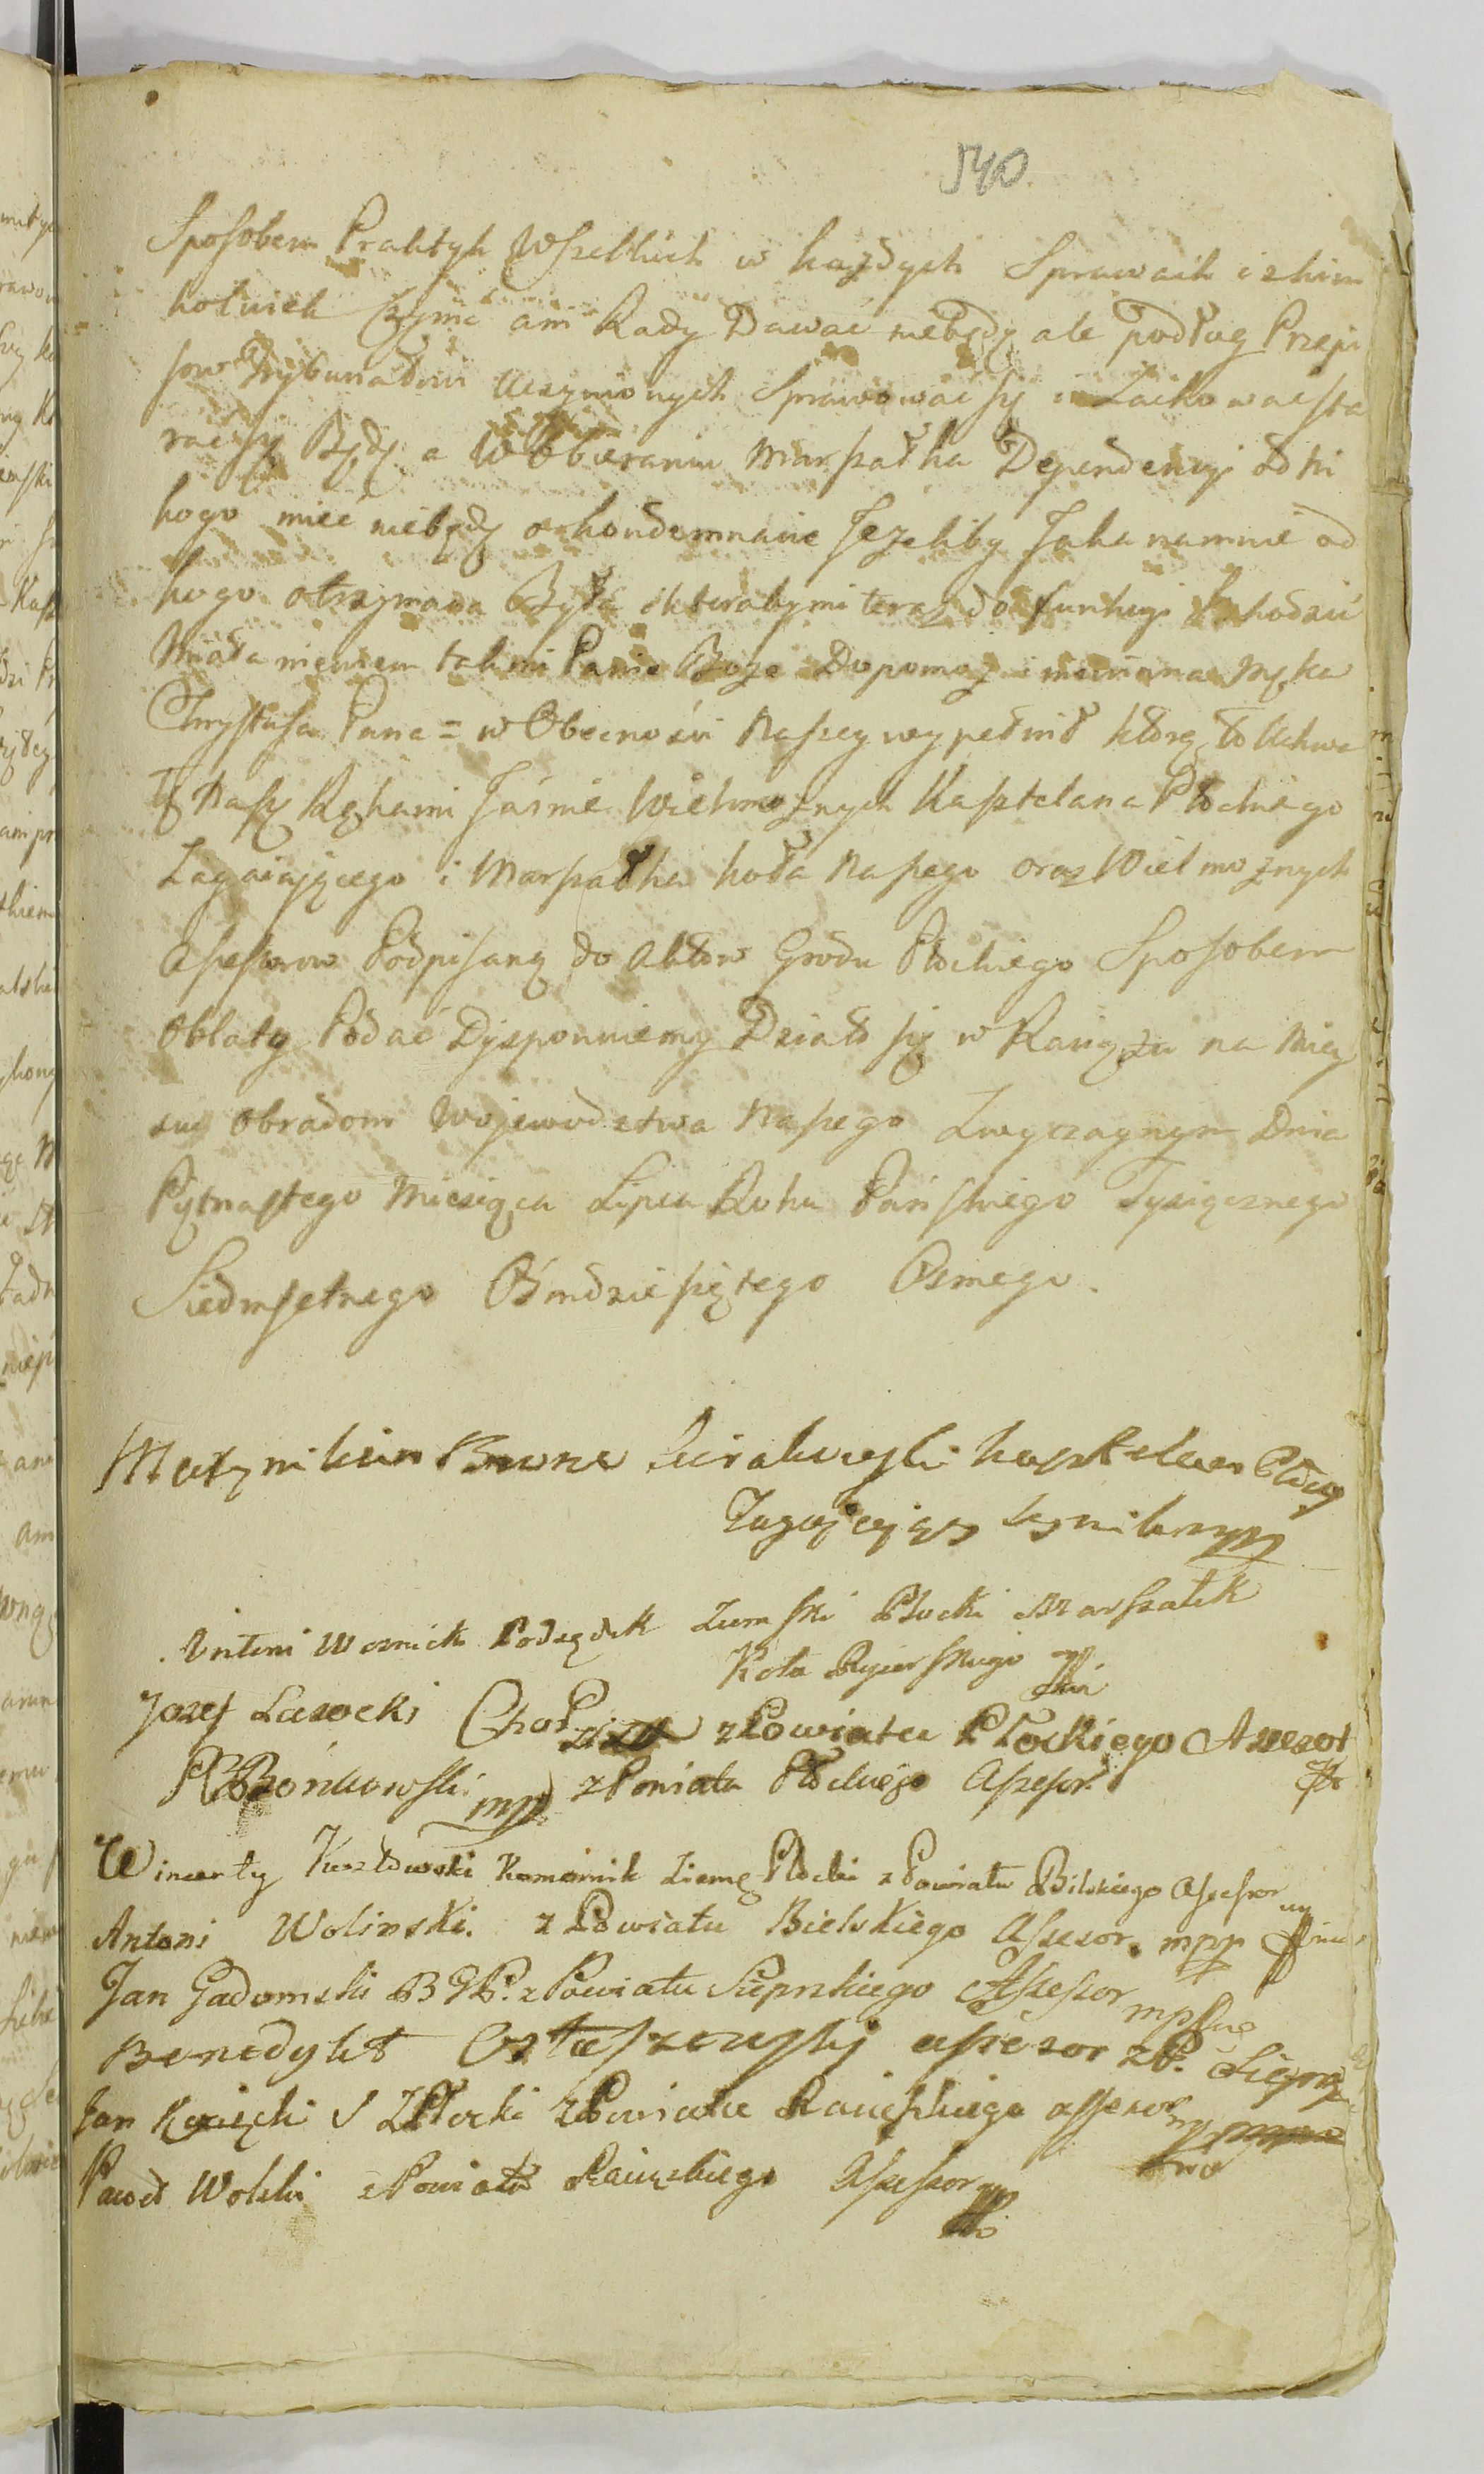 540
Sposobem Praktyk Wszelkich w każdych Sprawach i z kim
kolwiek Czynić ani Rady Dawać niebędę ale podług Przepi
sow Trybunałowi Uczynionych Sprawować się i Zachować sta
rać się Będę a W Obieraniu Marszałka Dependencyi od ni
kogo mieć niebędę o kondemnacie Jeżeliby Jaka na mnie od
kogo otrzymana Była i któraby mi teraz do funkcyi Szkodzić
Miała niewiem tak mi Panie Boże Dopomoż i niewinna Męka
Chrystusa Pana = w Obecności Naszey wypełnił którą to Uchwa
łę Naszą Rękami Jaśnie Wielmożnych Kasztelana Płockiego
Zagaiającego i Marszałka koła Naszego oraz Wielmożnych
Assessorow Podpisaną do Aktow Grodu Płockiego Sposobem
Oblaty Podać Dysponuiemy Działo się w Raciążu na Miey
scu Obradom Wojewodztwa Naszego Zwyczaynym Dnia
Piętnastego Miesiąca Lipca Roku Pańskiego Tysiącznego
Siedmsetnego Ośmdziesiątego Osmego.
Kasztelan Płocy
Zagajający Seymik mpp
Antoni Woznicki Podsędek Ziemski Płocki Marszałek
Koła Rycerskiego
Jozef Lasocki z Powiatu Płockiego Assesor
mpp z Powiatu Płockiego Assesor
Wincenty Komornik Ziems Płocki z Powiatu Bilskiego Assessor
Antoni Wolinski. z Powiatu Bielskiego Assesor. mpp
Jan Gadomski B G P. z Powiatu Sieprskiego Assessor mpp
Benedykt Ostaszewski assesor z P. Sieprs
Jan S Z Płocki z Powiatu Raciąskiego assesor
Paweł Wolski z Powiatu Raciąskiego Assessor